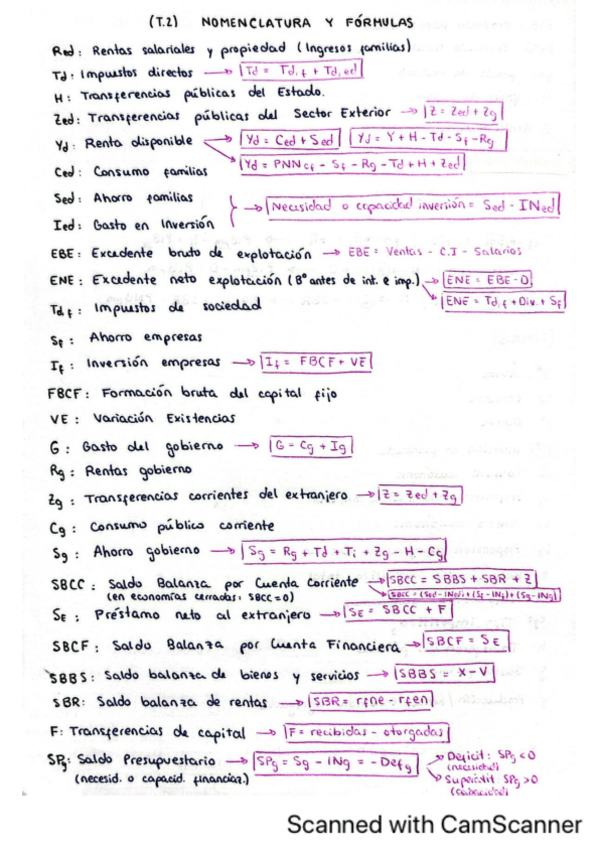 (T.2) NOMENCLATURA Y FÓRMULAS
Red: Rentas salariales y propiedad (Ingresos familias)
Td: Impuestos directos → Td = Td,f + Td,ed
H: Transferencias públicas del Estado.
Zed: Transferencias públicas del Sector Exterior → Z = Zed + Zg
Yd: Renta disponible → Yd = Ced + Sed Yd = Y + H - Td - Sf - Rg
Yd = PNNcf - Sf - Rg - Td + H + Zed
Ced: Consumo familias
Sed: Ahorro familias
→ Necesidad o capacidad inversión = Sed - INed
Ied: Gasto en Inversión
EBE: Excedente bruto de explotación → EBE = Ventas - C.I - Salarios
ENE: Excedente neto explotación (Bº antes de int. e imp.) → ENE = EBE - D
ENE = Td,f + Div. + Sf
Td,f: Impuestos de sociedad
Sf: Ahorro empresas
If: Inversión empresas → If = FBCF + VE
FBCF: Formación bruta del capital fijo
VE: Variación Existencias
G: Gasto del gobierno → G = Cg + Ig
Rg: Rentas gobierno
Zg: Transferencias corrientes del extranjero → Z = Zed + Zg
Cg: Consumo público corriente
Sg: Ahorro gobierno → Sg = Rg + Td + Ti + Zg - H - Cg
SBCC: Saldo Balanza por Cuenta Corriente → SBCC = SBBS + SBR + Z
(en economías cerradas: SBCC=0) → SBCC = (Sed - INed) + (Sf - INf) + (Sg - INg)
SE: Préstamo neto al extranjero → SE = SBCC + F
SBCF: Saldo Balanza por Cuenta Financiera → SBCF = SE
SBBS: Saldo balanza de bienes y servicios → SBBS = X - V
SBR: Saldo balanza de rentas → SBR = rfne - rfen
F: Transferencias de capital → F = recibidas - otorgadas
SPg: Saldo Presupuestario → SPg = Sg - INg = - Defg → Déficit: SPg < 0
(necesidad)
(necesid. o capacid. financiar.) → Superávit: SPg > 0
(capacidad)
Scanned with CamScanner